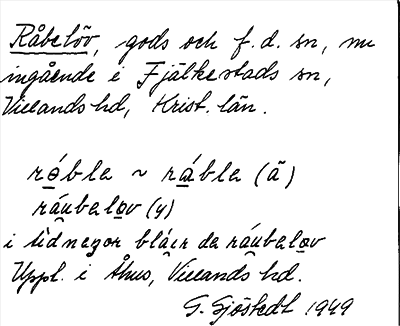 Råbelöv, gods och f. d. sn, nu
ingående i Fjälkestads sn,
Villands hd, Krist. län.
róbla ~ rábla (ä)
ráubalov (y)
i tìdnęgor bláir da ráubalov
Uppl. i Åhus, Villands hd.
G. Sjöstedt 1949